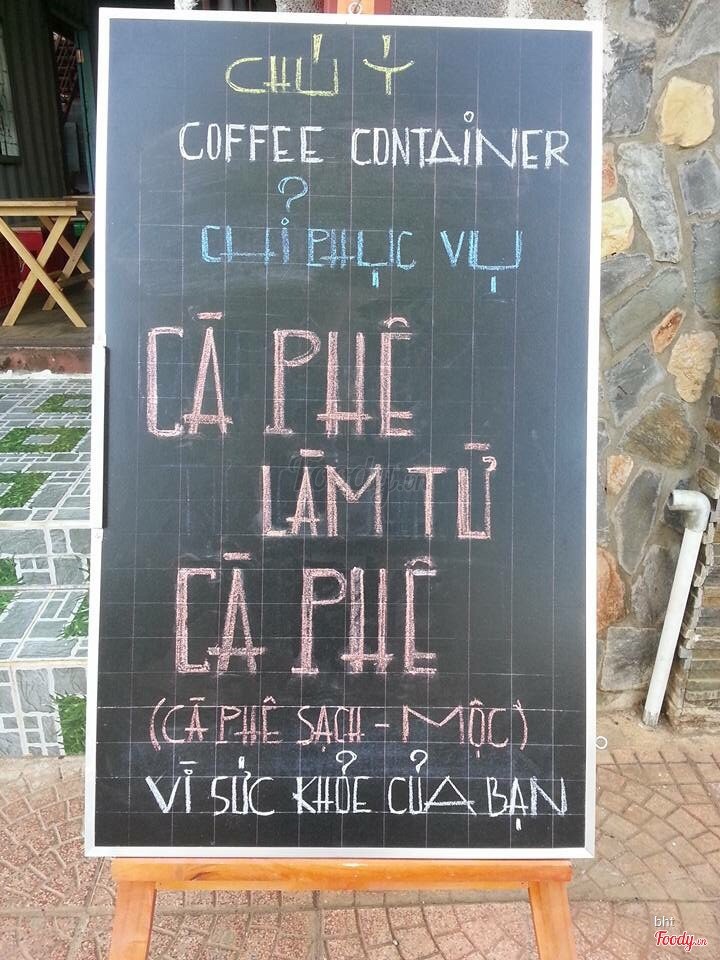 CHÚ Ý
COFFEE CONTAINER
CHỈ PHỤC VỤ
CÀ PHÊ
LÀM TỪ
CÀ PHÊ
(CÀ PHÊ SẠCH - MỘC)
VÌ SỨC KHỎE CỦA BẠN
bht
Foody.vn